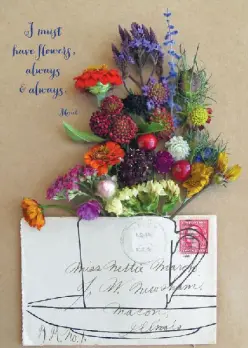 I must
have flowers,
always
& always.
Monet
Miss Nettie Macon
Macon,
Illinois
R.R. No. 1.